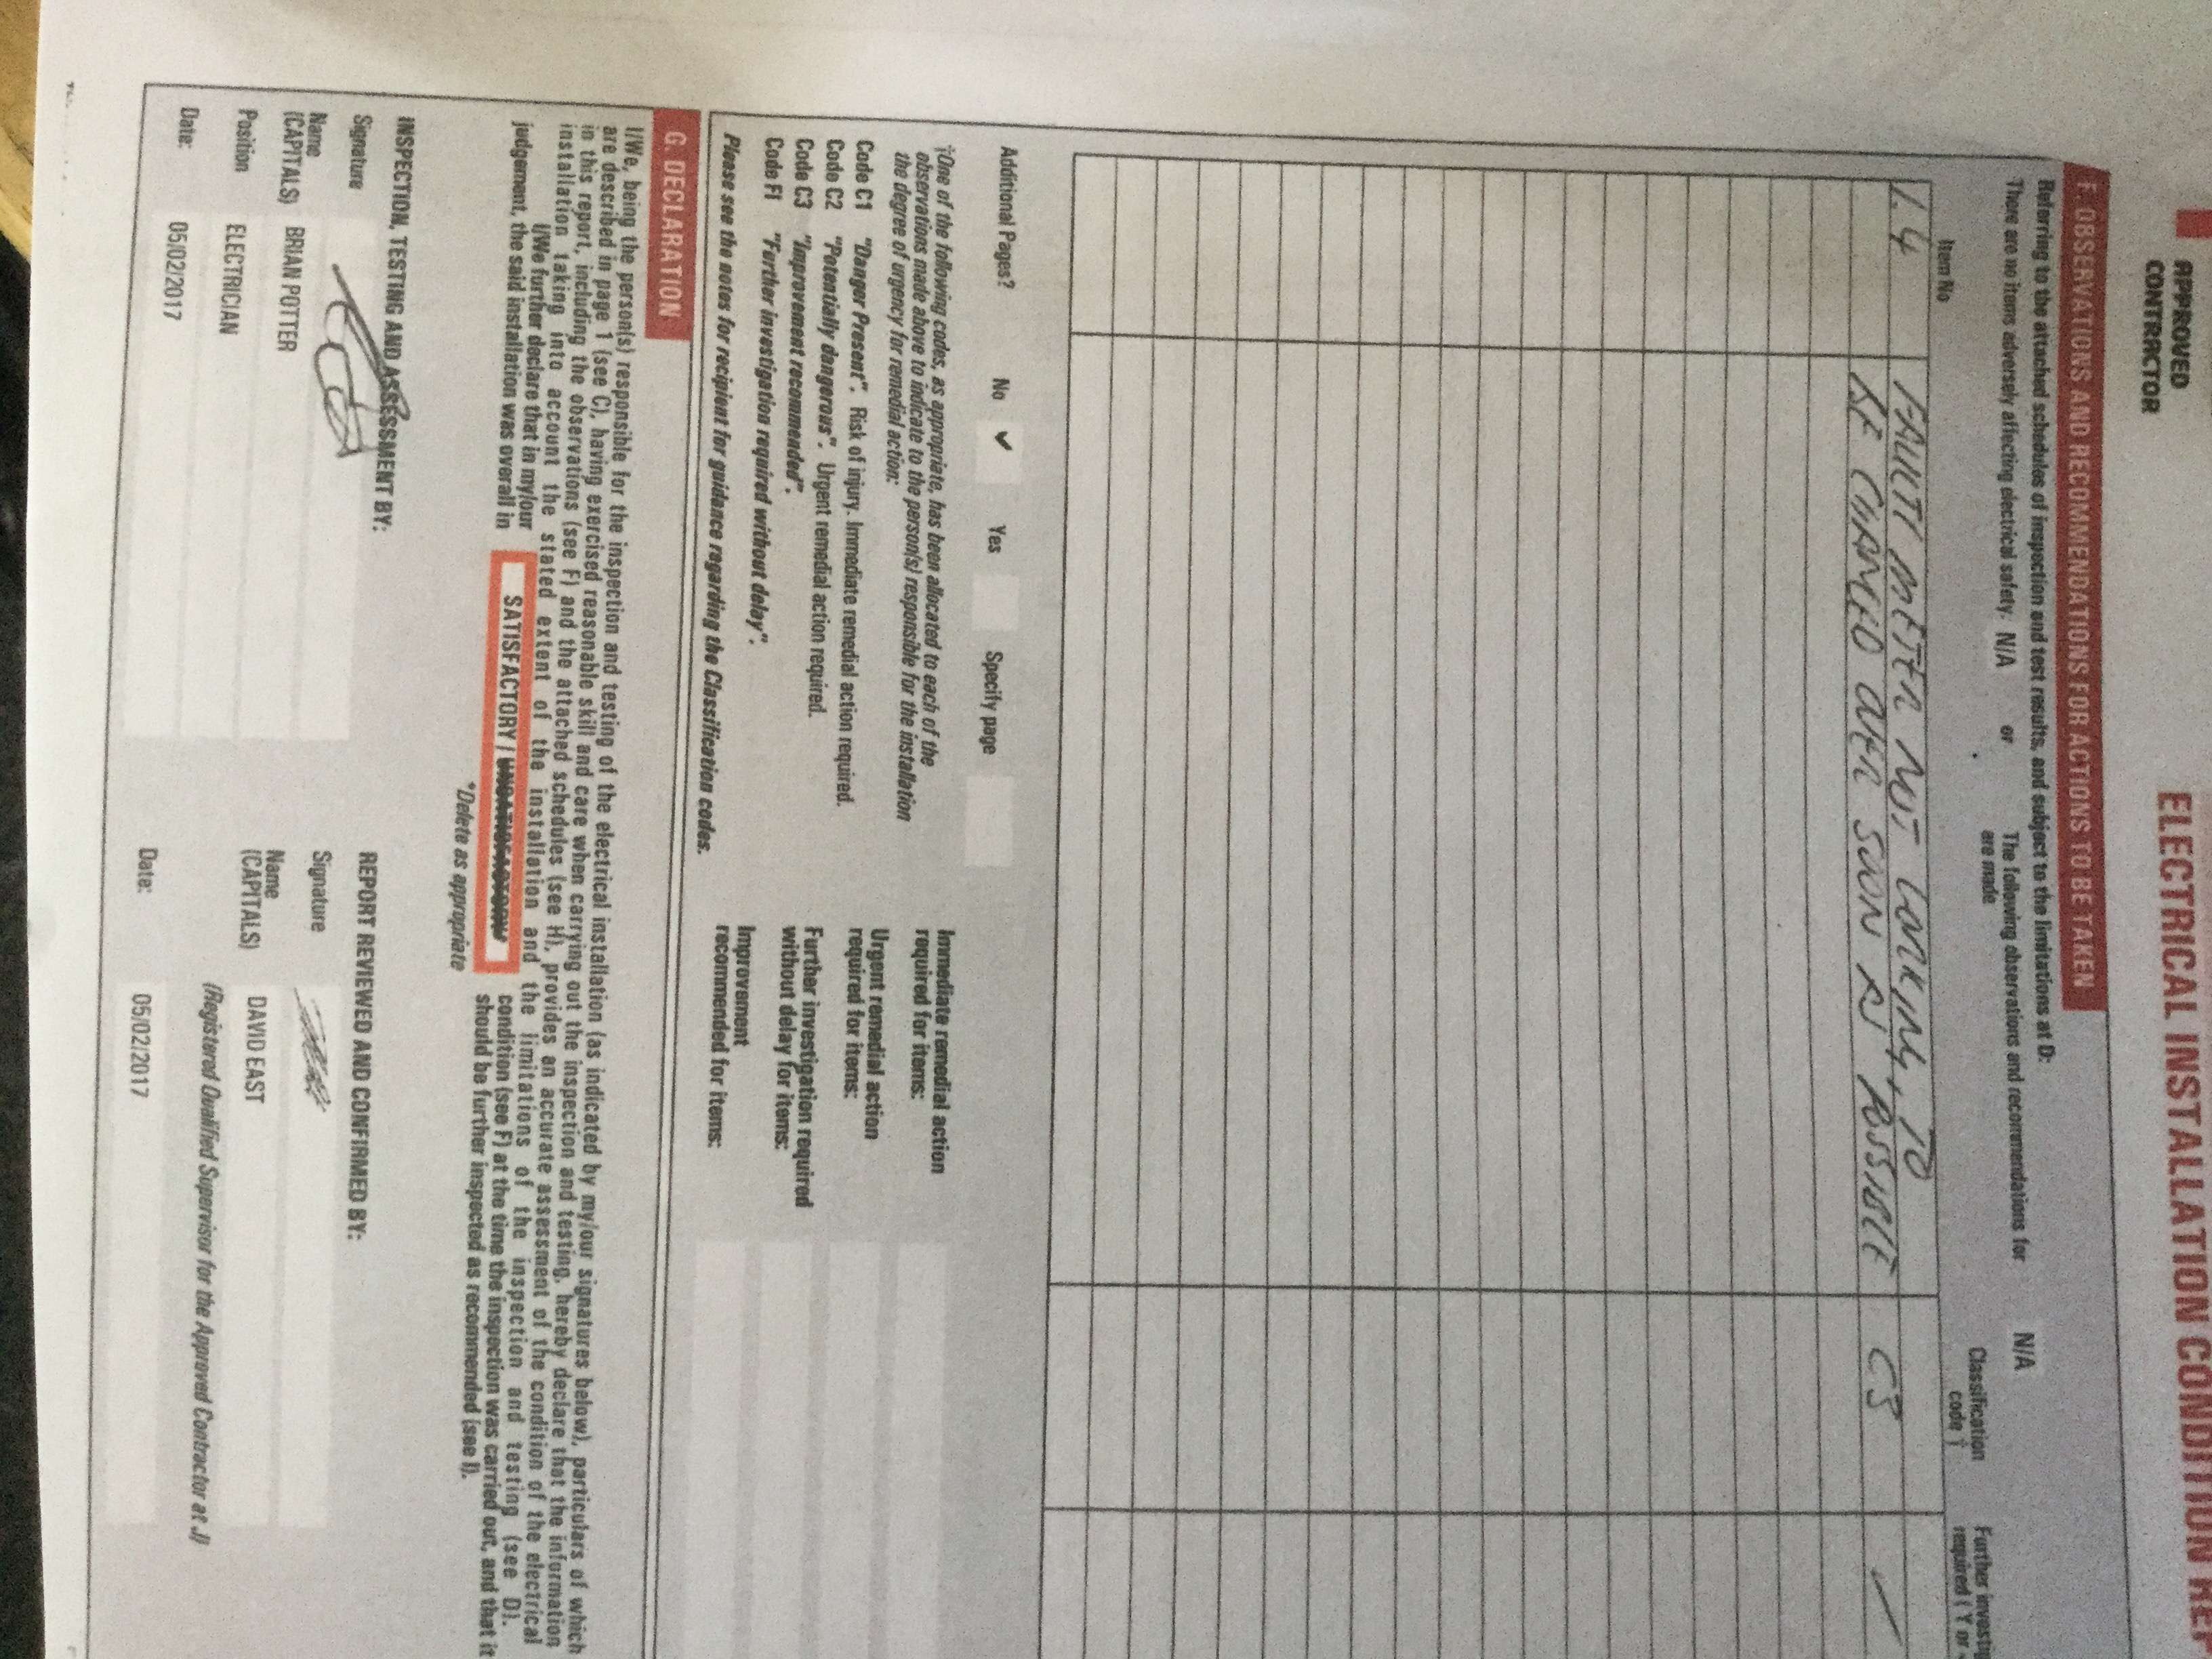 APPROVED
CONTRACTOR
ELECTRICAL INSTALLATION CONDITION REP
F. OBSERVATIONS AND RECOMMENDATIONS FOR ACTIONS TO BE TAKEN
Referring to the attached schedules of inspection and test results, and subject to the limitations at D:
There are no items adversely affecting electrical safety: N/A or The following observations and recommendations for are made N/A
Item No
Classification code †
Further investig
required ( Y or
1.4 FAULTY METER NOT WORKING, TO
BE CHANGED OVER SOON AS POSSIBLE C3 ✓
Additional Pages? No ✔ Yes Specify page
†One of the following codes, as appropriate, has been allocated to each of the
observations made above to indicate to the person(s) responsible for the installation
the degree of urgency for remedial action:
Code C1 "Danger Present". Risk of injury. Immediate remedial action required.
Code C2 "Potentially dangerous". Urgent remedial action required.
Code C3 "Improvement recommended".
Code FI "Further investigation required without delay".
Please see the notes for recipient for guidance regarding the Classification codes.
Immediate remedial action
required for items:
Urgent remedial action
required for items:
Further investigation required
without delay for items:
Improvement
recommended for items:
G. DECLARATION
I/We, being the person(s) responsible for the inspection and testing of the electrical installation (as indicated by my/our signatures below), particulars of which
are described in page 1 (see C), having exercised reasonable skill and care when carrying out the inspection and testing, hereby declare that the information
in this report, including the observations (see F) and the attached schedules (see H), provides an accurate assessment of the condition of the electrical
installation taking into account the stated extent of the installation and the limitations of the inspection and testing (see D).
I/We further declare that in my/our
judgement, the said installation was overall in
SATISFACTORY / UNSATISFACTORY
condition (see F) at the time the inspection was carried out, and that it
should be further inspected as recommended (see I).
*Delete as appropriate
INSPECTION, TESTING AND ASSESSMENT BY:
Signature
Name
(CAPITALS) BRIAN POTTER
Position ELECTRICIAN
Date: 05/02/2017
REPORT REVIEWED AND CONFIRMED BY:
Signature
Name
(CAPITALS) DAVID EAST
(Registered Qualified Supervisor for the Approved Contractor at J)
Date: 05/02/2017